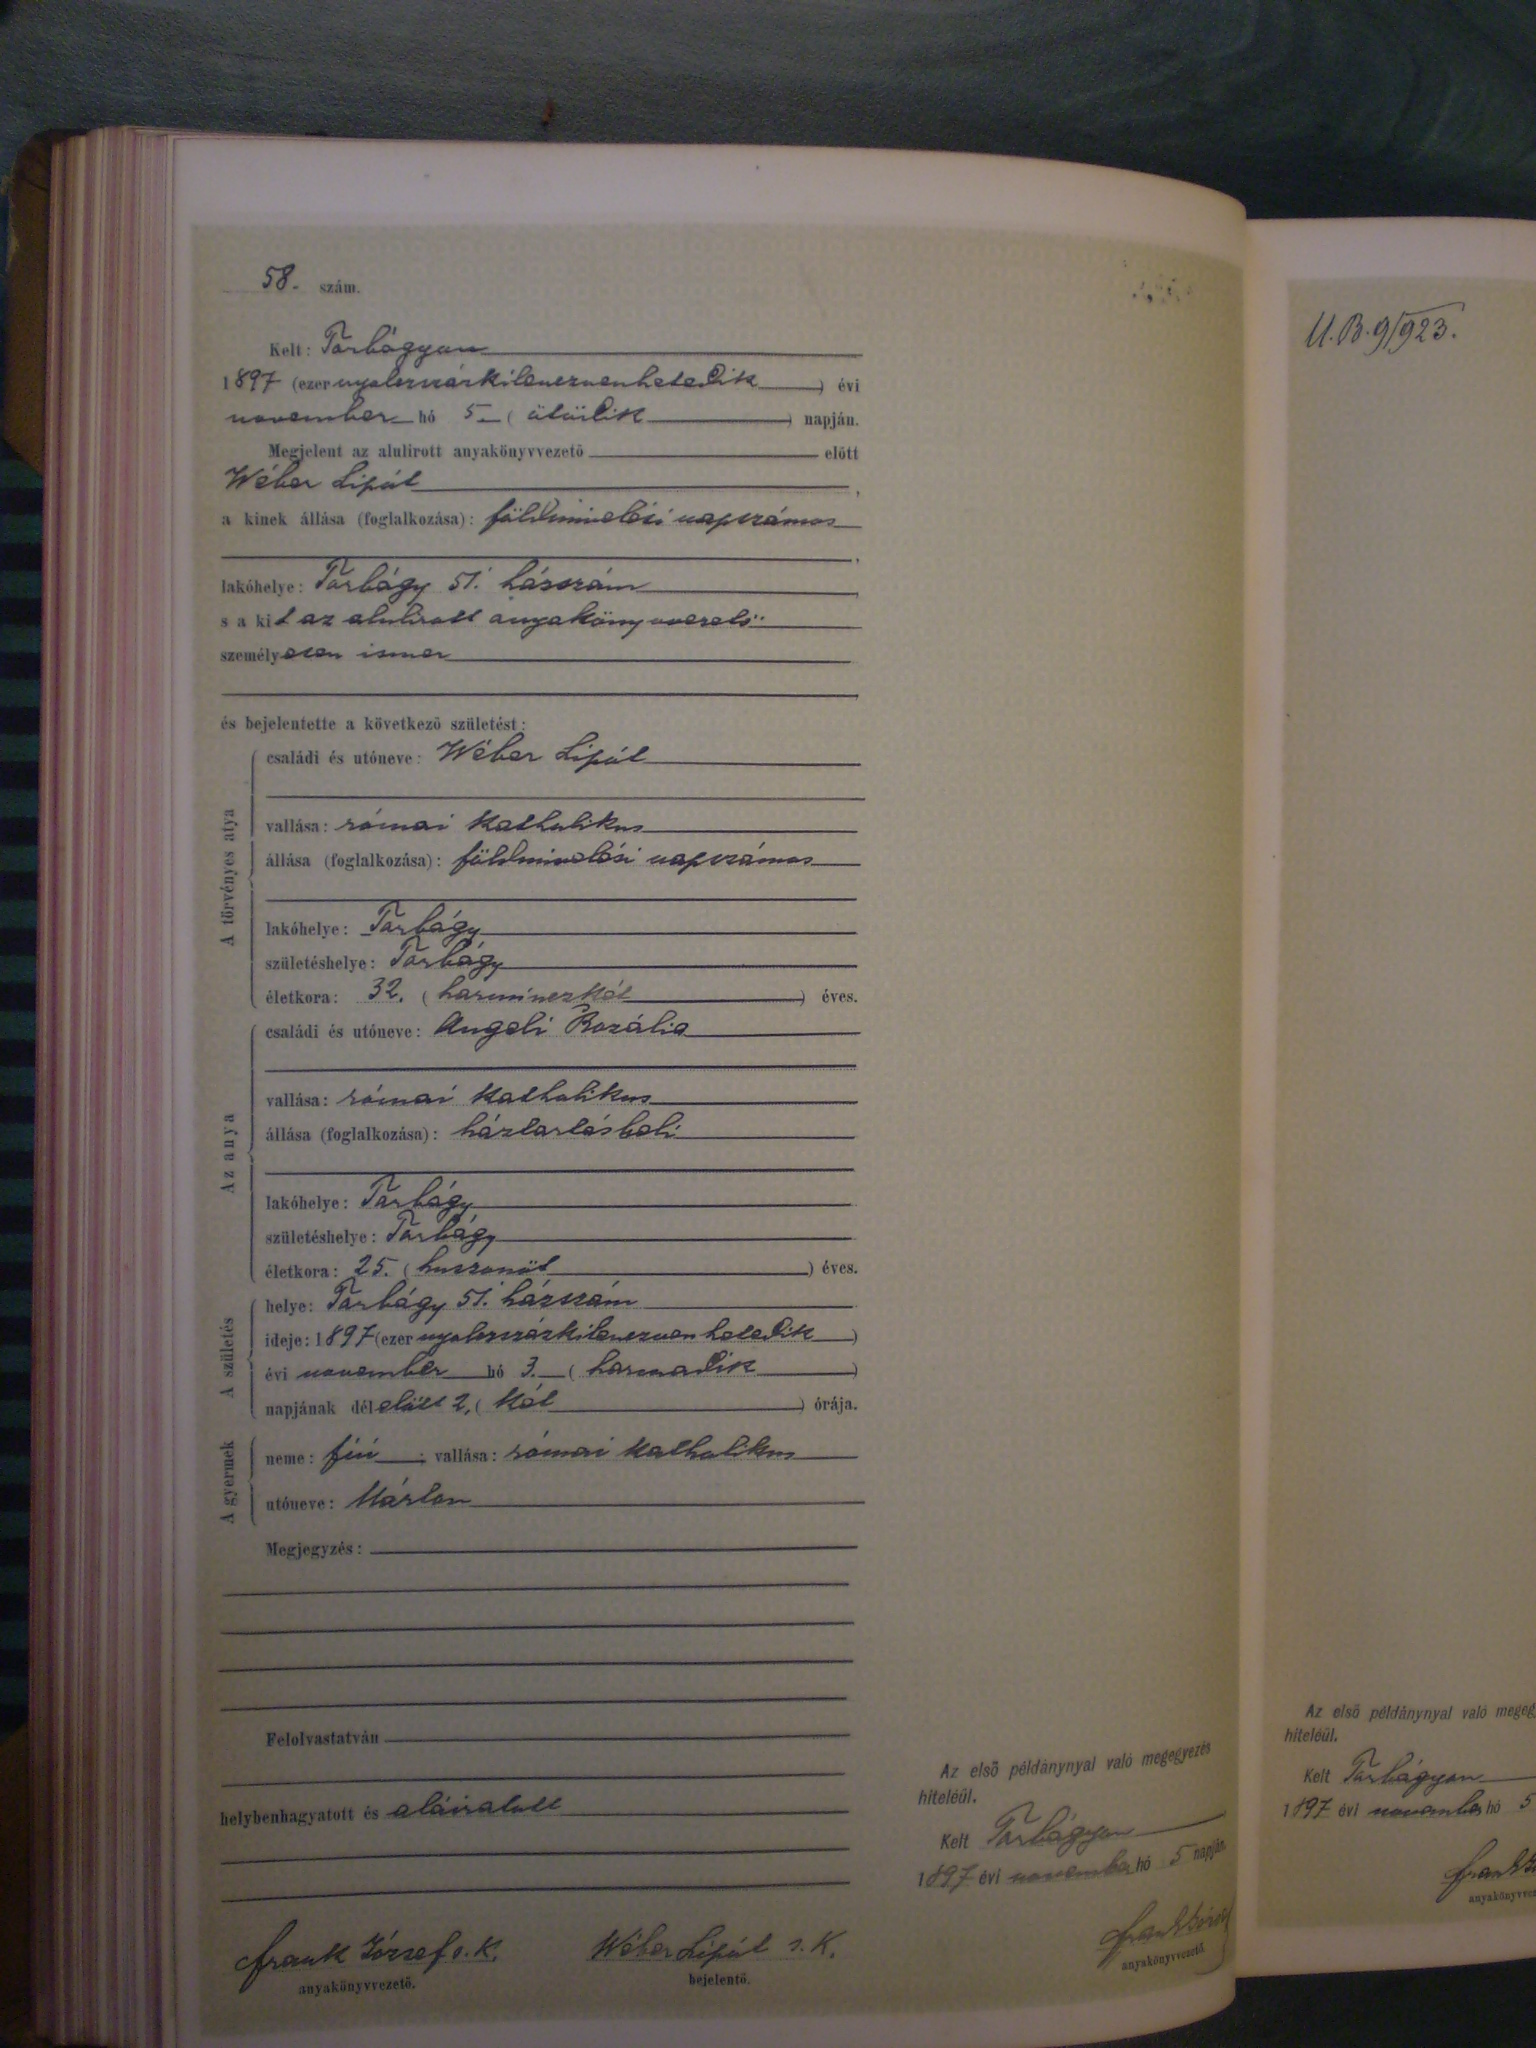 58. szám.
Kelt: Torbágyon
1897 (ezernyolczszázkilenczvenhetedik) évi
november hó 5 (ötödik) napján.
Megjelent az alulirott anyakönyvvezető előtt
Wéber Lipót,
a kinek állása (foglalkozása): földmivelési napszámos
,
lakóhelye: Torbágy 51. házszám,
s a kit az alulirott anyakönyvvezető
személyesen ismer
,
és bejelentette a következő születést:
A törvényes atya
családi és utóneve: Wéber Lipót
vallása: római katholikus
állása (foglalkozása): földmivelési napszámos
lakóhelye: Torbágy
születéshelye: Torbágy
életkora: 32. (harminczkét) éves.
Az anya
családi és utóneve: Angeli Rozália
vallása: római katholikus
állása (foglalkozása): háztartásbeli
lakóhelye: Torbágy
születéshelye: Torbágy
életkora: 25. (huszonöt) éves.
A születés
helye: Torbágy 51. házszám
ideje: 1897 (ezernyolczszázkilenczvenhetedik)
évi november hó 3. (harmadik)
napjának délelőtt 2. (két) órája.
A gyermek
neme: fiú; vallása: római katholikus
utóneve: Márton
Megjegyzés:
Felolvastatván
helybenhagyatott és aláiratott
Frank József s. k.
anyakönyvvezető.
Wéber Lipót s. k.
bejelentő.
Az első példánynyal való megegyezés
hiteléül.
Kelt Torbágyon
1897 évi november hó 5 napján
Frank József
anyakönyvvezető
U. B. 9/923.
Az első példánynyal való megeg
hiteléül.
Kelt Torbágyon
1897 évi november hó 5
Frank
anyakönyvvez